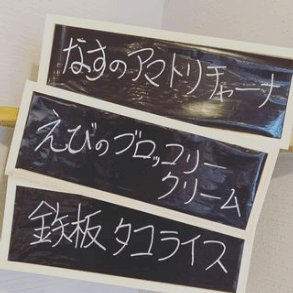 なすのアマトリチャーナ
えびのブロッコリー
クリーム
鉄板タコライス